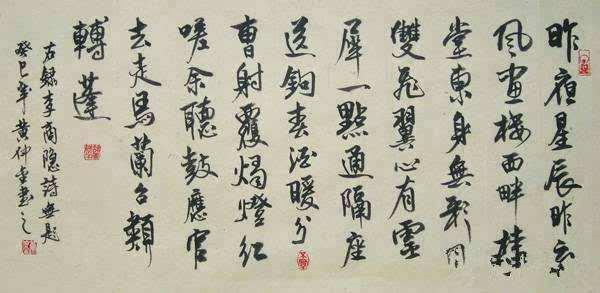 昨夜星辰昨夜
風畫樓西畔桂
堂東身無彩鳳
雙飛翼心有靈
犀一點通隔座
送鈎春酒暖分
曹射覆燭燈紅
嗟余聽鼓應官
去走馬蘭台類
轉蓬
右録李商隐詩無題
癸巳年黄仲書之